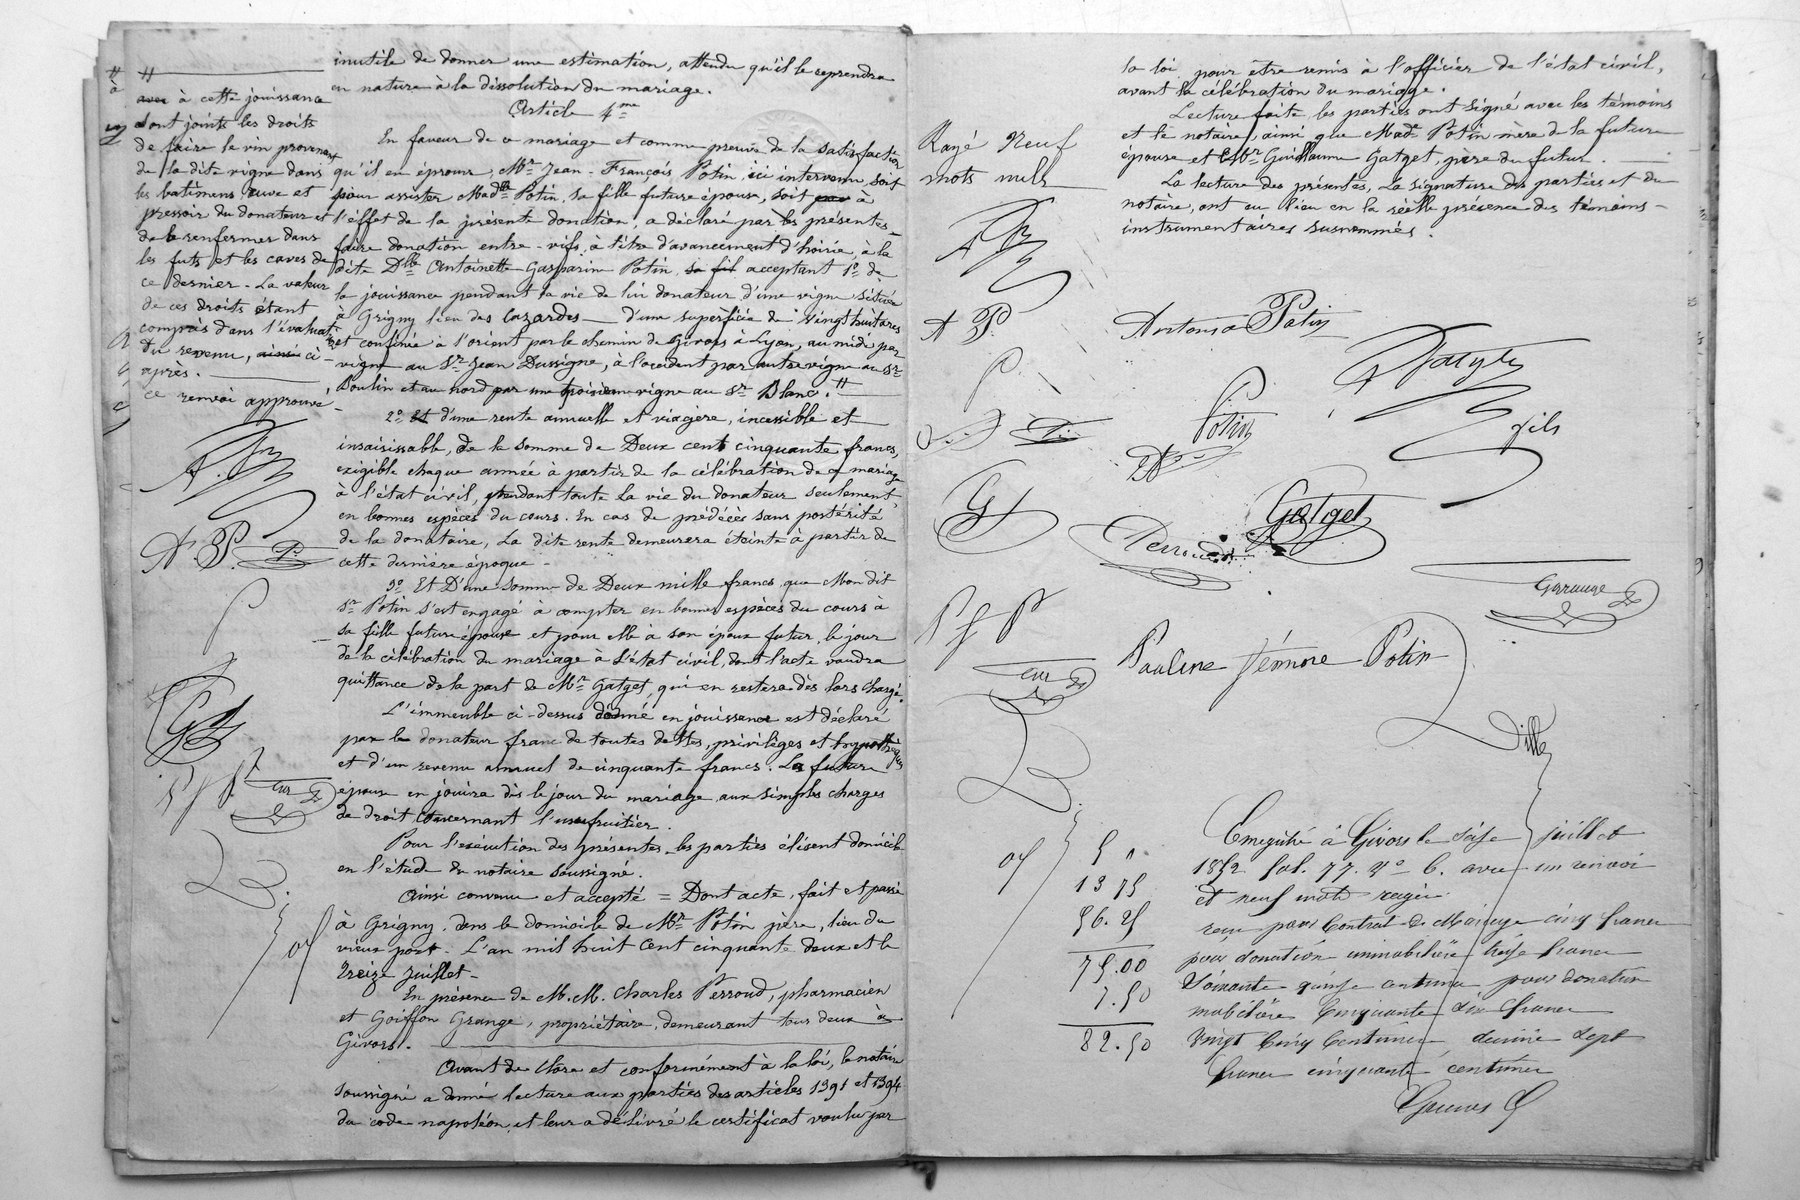 inutile de donner une estimation, attendu qu'il le reprendra
en nature à la dissolution du mariage.
Article 4me
En faveur de ce mariage et comme preuve de la satisfaction
qu'il en éprouve, Mr Jean-François Potin, ici intervenu, soit
pour assister Madlle Potin, sa fille future épouse, soit à
l'effet de la présente donation, a déclaré par les présentes
faire donation entre-vifs, à titre d'avancement d'hoirie, à la
dite Dlle Antoinette Gasparine Potin, sa fil acceptant 1º de
la jouissance pendant la vie de lui donateur d'une vigne située
à Grigny lieu des Cazardes d'une superficie de vingt huit ares
et confinée à l'orient par le chemin de Givors à Lyon, au midi par
vigne au Sr Jean Dussigne, à l'occident par autre vigne au Sr
Boulin et au nord par une troisième vigne au Sr Blanc. #
2º Et d'une rente annuelle et viagère, incessible et
insaisissable, de la somme de Deux cent cinquante francs,
exigible chaque année à partir de la célébration de ce mariage
à l'état civil, pendant toute la vie du donateur seulement,
en bonnes espèces du cours. En cas de prédécès sans postérité
de la donataire, la dite rente demeurera éteinte à partir de
cette dernière époque.
3º Et D'une somme de Deux mille francs que Mondit
Sr Potin s'est engagé à compter en bonnes espèces du cours à
sa fille future épouse et pour elle à son époux futur, le jour
de la célébration du mariage à l'état civil, dont l'acte vaudra
quittance de la part de Mr Gatget, qui en restera dès lors chargé.
L'immeuble ci-dessus donné en jouissance est déclaré
par le donateur franc de toutes dettes, privilèges et hypothèques
et d'un revenu annuel de cinquante francs. La future
épouse en jouira dès le jour du mariage, aux simples charges
de droit concernant l'usufruitier.
Pour l'exécution des présentes les parties élisent domicile
en l'étude du notaire soussigné.
Ainsi convenu et accepté = Dont acte, fait et passé
à Grigny, dans le domicile de Mr Potin père, lieu du
vieux port. L'an mil huit cent cinquante deux et le
Treize Juillet-
En présence de M.M. Charles Perroud, pharmacien
et Goiffon Grange, propriétaire, demeurant tous deux à
Givors.
Avant de clore et conformément à la loi, le notaire
soussigné a donné lecture aux parties des articles 1391 et 1394
du code napoléon, et leur a délivré le certificat voulu par
#
avec à cette jouissance
sont joints les droits
de faire le vin provenant
de la dite vigne dans
les batimens, cuve et
pressoir du donateur et
de le renfermer dans
les futs et les caves de
ce dernier. La valeur
de ces droits étant
compris dans l'évaluation
du revenu, ainsi ci-
après.
ce renvoi approuvé
A. P.
la loi pour être remis à l'officier de l'état civil,
avant la célébration du mariage.
Lecture faite, les parties ont signé avec les témoins
et le notaire, ainsi que Made Potin mère de la future
épouse et Mr Guillaume Gatget, père du futur.
La lecture des présentes, la signature des parties et du
notaire, ont eu lieu en la réelle présence des témoins
instrumentaires susnommés.
Rayé Neuf
mots nuls
A P.
P
G
Antonia Potin
Gatget
fils
Potin
Gatget
Perroud
Garrange
Pauline Fémore Potin
Enregistré à Givors le seize juillet
1852 fol. 77. Vº C. 6. avec un renvoi
et neuf mots rayés
reçu pour Contrat de Mariage cinq francs
pour donation immobilière treize francs
Soixante quinze centimes pour donation
mobilière Cinquante six francs
Vingt Cinq Centimes, décime sept
francs cinquante centimes
5 "
13 75
56.25
75.00
7.50
82.50